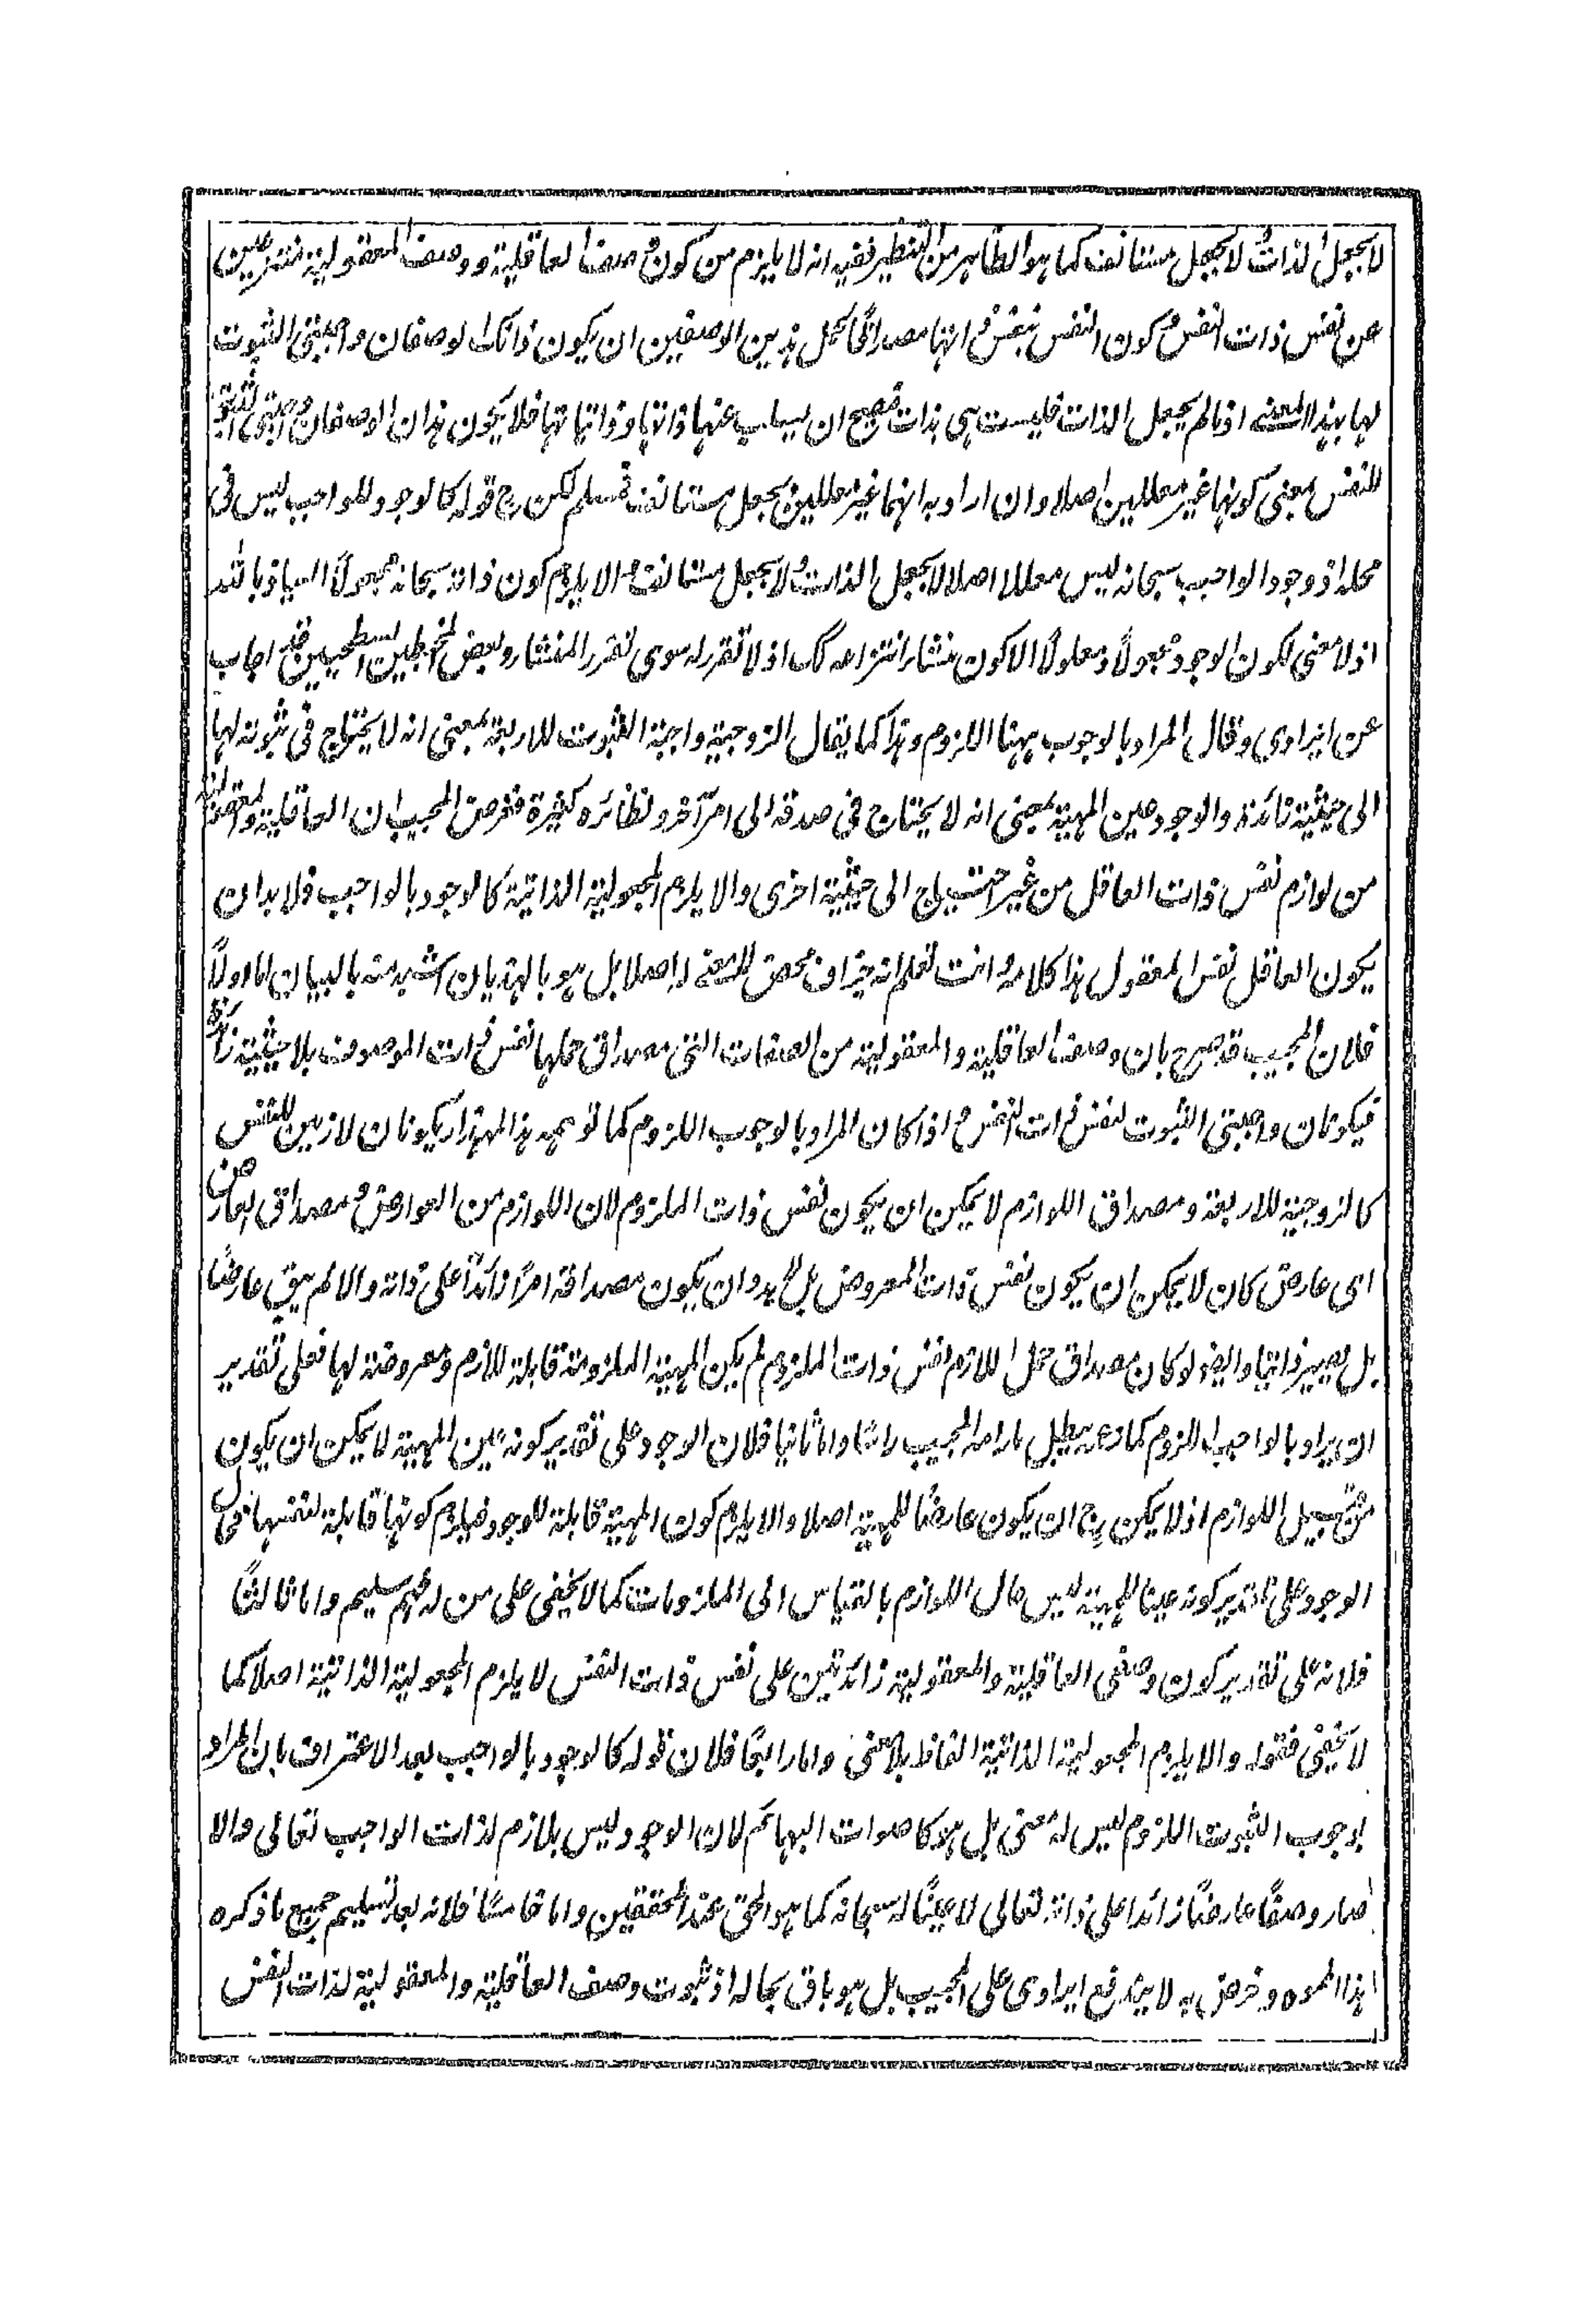 لا بجعل الذات ولا بجعل مستانف كما هو الظاهر من التنظير ففيه انه لا يلزم من كون وصف العاقلية ووصف المعقولية منتزعين
عن نفس ذات النفس وكون النفس بنفس ذاتها مصداقا لحمل هذين الوصفين ان يكون ذانك الوصفان واجبتى الثبوت
لها بهذا المعنى اذ ما لم يجعل الذات فليست هى بذات فيصح ان يسلب عنها ذاتها وذاتياتها فلا يكون هذان الوصفان واجبتى الثبوت
للنفس بمعنى كونها غير معللين اصلا وان اراد به انهما غير معللين بجعل مستانف فمسلم لكن ح قوله كالوجود للواجب ليس فى
محله اذ وجود الواجب سبحانه ليس معللا اصلا لا بجعل الذات ولا بجعل مستانف والا يلزم كون ذاته سبحانه مجعولا العياذ بالله
اذ لا معنى لكون الوجود مجعولاً ومعلولاً الا كون منشا انتزاعه كك اذ لا تقرر له سوى تقرر المنشا وبعض اجاب
عن ايرادى وقال المراد بالوجوب ههنا اللزوم وهذا كما يقال الزوجية واجبة الثبوت للاربعة بمعنى انه لا يحتاج فى ثبوته لها
الى حيثية زائدة والوجود عين المهية بمعنى انه لا يحتاج فى صدقه الى امر آخر ونظائره كثيرة فغرض المجيب ان العاقلية والمعقولية
من لوازم نفس ذات العاقل من غير احتياج الى حيثية اخرى والا يلزم المجعولية الذاتية كالوجود بالواجب فلا بد ان
يكون العاقل نفس المعقول هذا كلامه وانت تعلم انه جزاف محض لا معنى له اصلا بل هو بالهذيان اشبه منه بالبيان اما اولاً
فلان المجيب قد صرح بان وصف العاقلية والمعقولية من الصفات التى مصداق حملها نفس ذات الموصوف بلا حيثية زائدة
فيكونان واجبتى الثبوت لنفس ذات النفس ح اذا كان المراد بالوجوب اللزوم كما توهمه هذا المهذار يكونان لازمين للنفس
كالزوجية للاربعة ومصداق اللوازم لا يمكن ان يكون نفس ذات الملزوم لان اللوازم من العوارض ومصداق العارض
اى عارض كان لا يمكن ان يكون نفس ذات المعروض بل لا بد وان يكون مصداقه امراً زائداً على ذاته والا لم يبق عارضاً
بل يصير ذاتيا وايضا لو كان مصداق حمل اللازم نفس ذات الملزوم لم يكن المهية الملزومة قابلة للازم ومعروضة لها فعلى تقدير
ان يراد بالواجب اللزوم كما زعمه يبطل ما رامه المجيب راسًا واما ثانيا فلان الوجود على تقدير كونه عين المهية لا يمكن ان يكون
من قبيل اللوازم اذ لا يمكن ح ان يكون عارضًا للمهية اصلا والا يلزم كون المهية قابلة للوجود فيلزم كونها قابلة لنفسها فحال
الوجود على تقدير كونه عينا للمهية ليس حال اللوازم بالقياس الى الملزومات كما لا يخفى على من له فهم سليم واما ثالثًا
فلانه على تقدير كون وصفى العاقلية والمعقولية زائدتين على نفس ذات النفس لا يلزم المجعولية الذاتية اصلا كما
لا يخفى فقوله والا يلزم المجعولية الذاتية الفاظ بلا معنى واما رابعًا فلان قوله كالوجود بالواجب بعد الاعتراف بان المراد
بوجوب الثبوت اللزوم ليس له معنى بل هو كاصوات البهائم لان الوجود ليس بلازم لذات الواجب تعالى والا
صار وصفًا عارضًا زائدا على ذاته تعالى لا عينًا له سبحانه كما هو الحق عند المحققين واما خامسًا فلانه بعد تسليم جميع ما ذكره
هذا المموه وخرص به لا يندفع ايرادى على المجيب بل هو باق بحاله اذ ثبوت وصف العاقلية والمعقولية لذات النفس